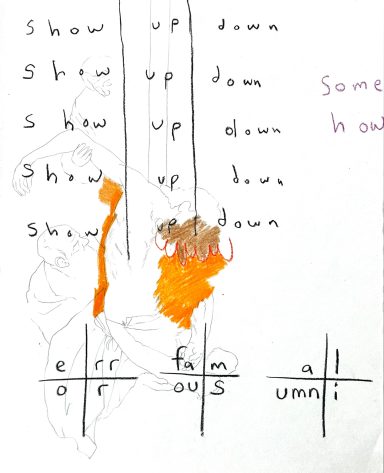 show up down
show up down
some
show up down
how
show up down
show up down
e rr fa m a l
o r ou s umn i